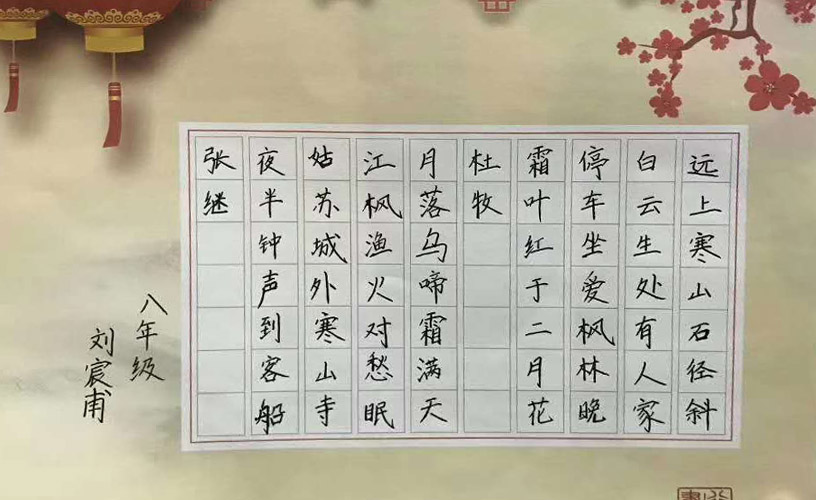 远上寒山石径斜
白云生处有人家
停车坐爱枫林晚
霜叶红于二月花
杜牧
月落乌啼霜满天
江枫渔火对愁眠
姑苏城外寒山寺
夜半钟声到客船
张继
八年级
刘宸甫